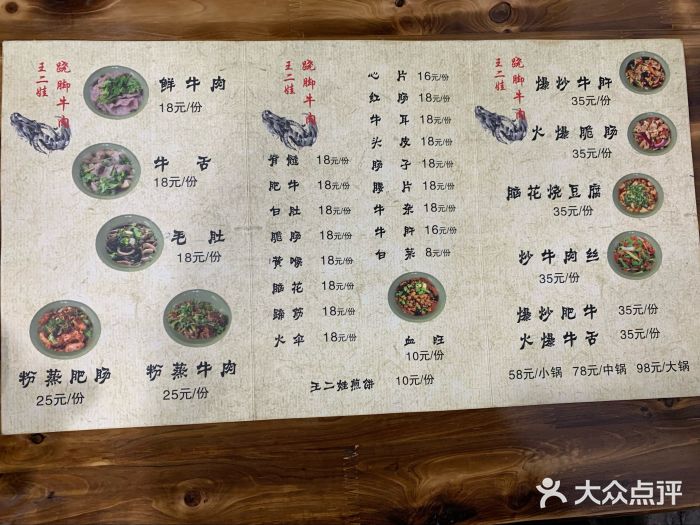 跷脚牛肉
王二娃
鲜牛肉
18元/份
牛舌
18元/份
毛肚
18元/份
粉蒸肥肠
25元/份
粉蒸牛肉
25元/份
跷脚牛肉
王二娃
脊髓 18元/份
肥牛 18元/份
白肚 18元/份
脆肠 18元/份
黄喉 18元/份
脑花 18元/份
蹄筋 18元/份
火伞 18元/份
心片 16元/份
红肠 18元/份
牛耳 18元/份
头皮 18元/份
肠子 18元/份
腰片 18元/份
牛杂 18元/份
牛肝 16元/份
白菜 8元/份
血旺
10元/份
王二娃煎饼 10元/份
跷脚牛肉
王二娃
爆炒牛肝
35元/份
火爆脆肠
35元/份
脑花烧豆腐
35元/份
炒牛肉丝
35元/份
爆炒肥牛 35元/份
火爆牛舌 35元/份
58元/小锅 78元/中锅 98元/大锅
大众点评